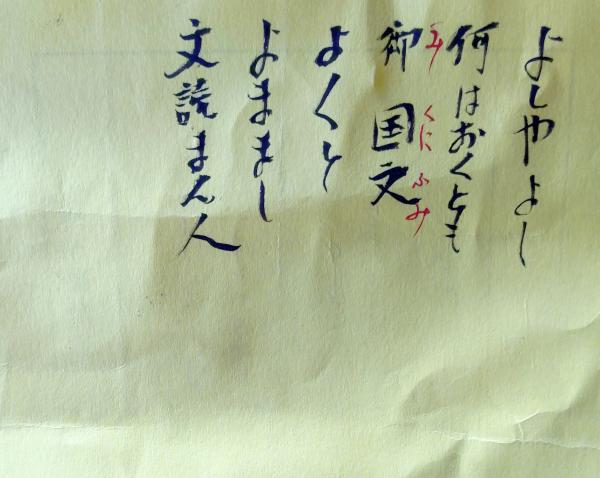 よしやよし
何はおくとも
み くに ふみ
御 国文
よくと
よままし
文読まん人